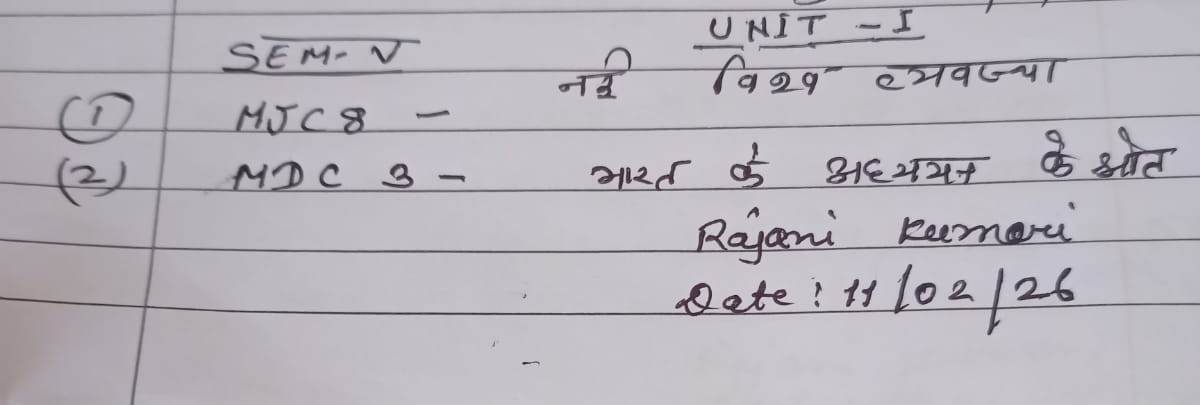 UNIT - I
SEM- V
नई विश्व व्यवस्था
(1) MJC 8 -
(2) MDC 3 - भारत के अध्ययन के स्रोत
Rajani Kumari
Date : 11/02/26